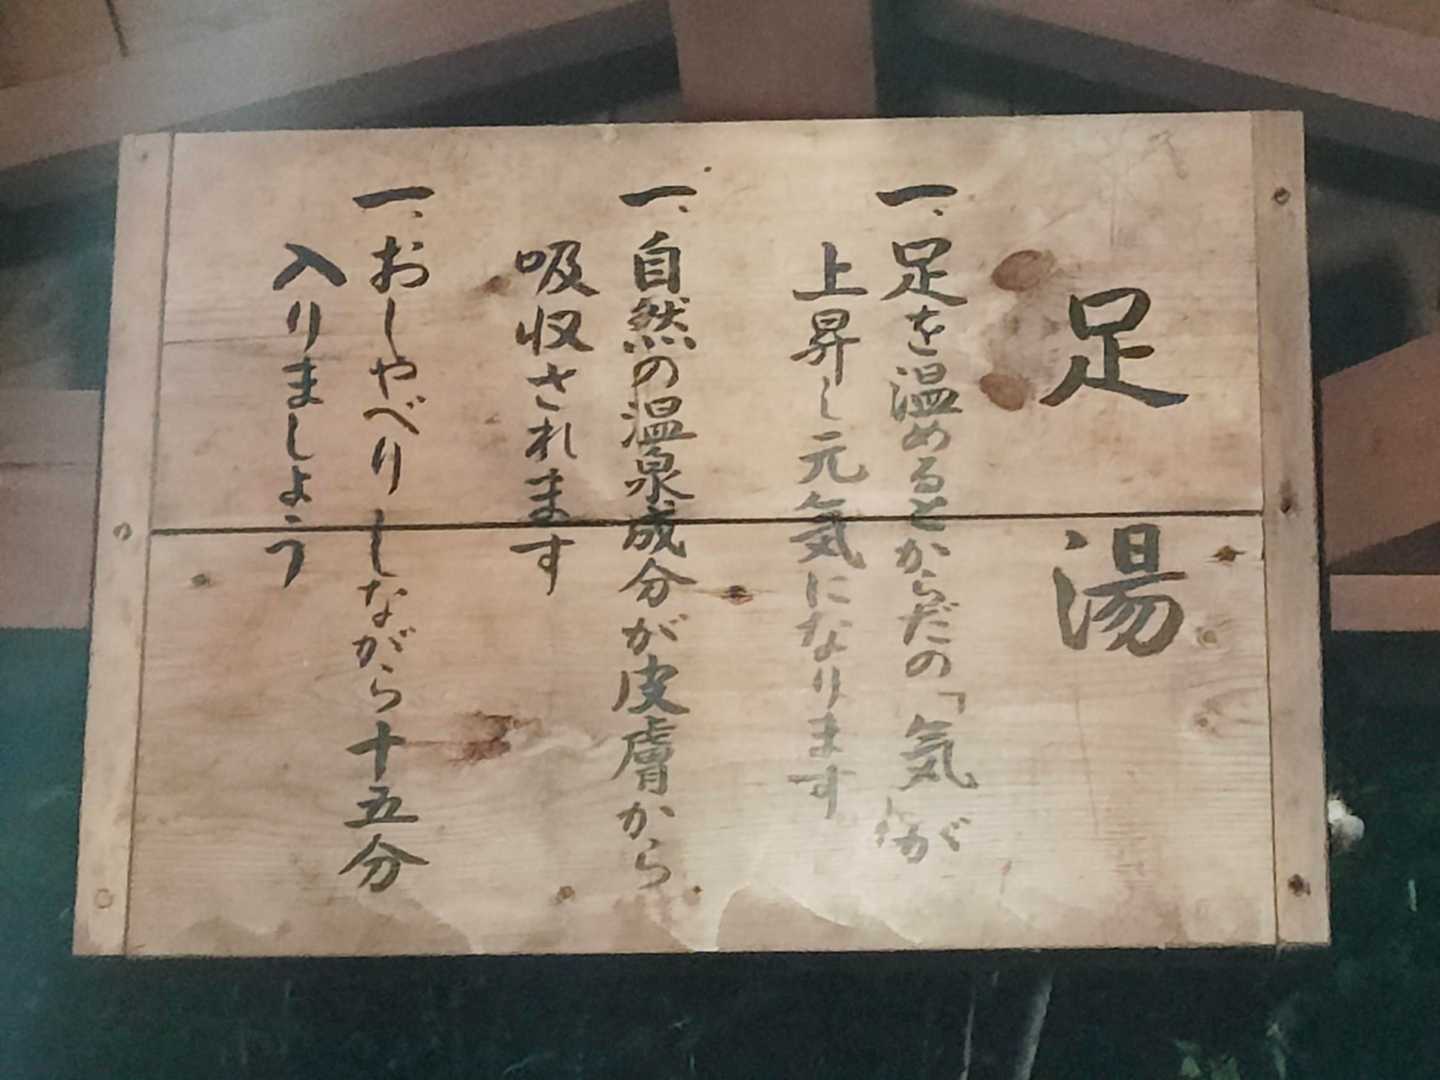 足湯
一、足を温めるとからだの「気」が
上昇し元気になります
一、自然の温泉成分が皮膚から
吸収されます
一、おしゃべりしながら十五分
入りましょう